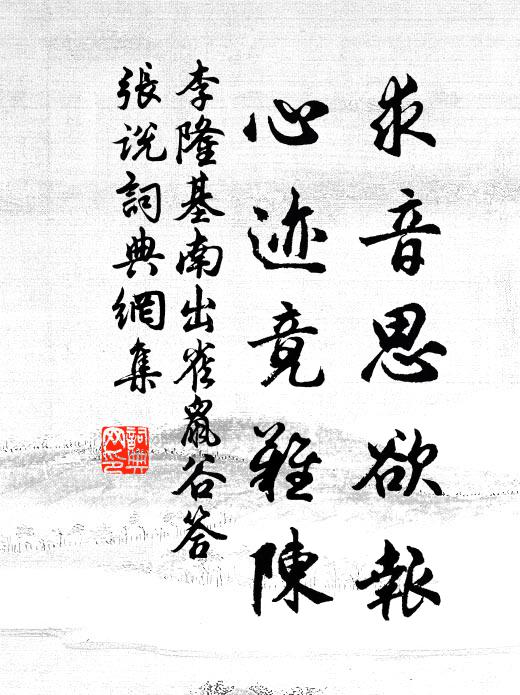 求音思欲報
心迹竟難陳
李隆基南出雀鼠谷答
張説詞典網集
詞典
网印